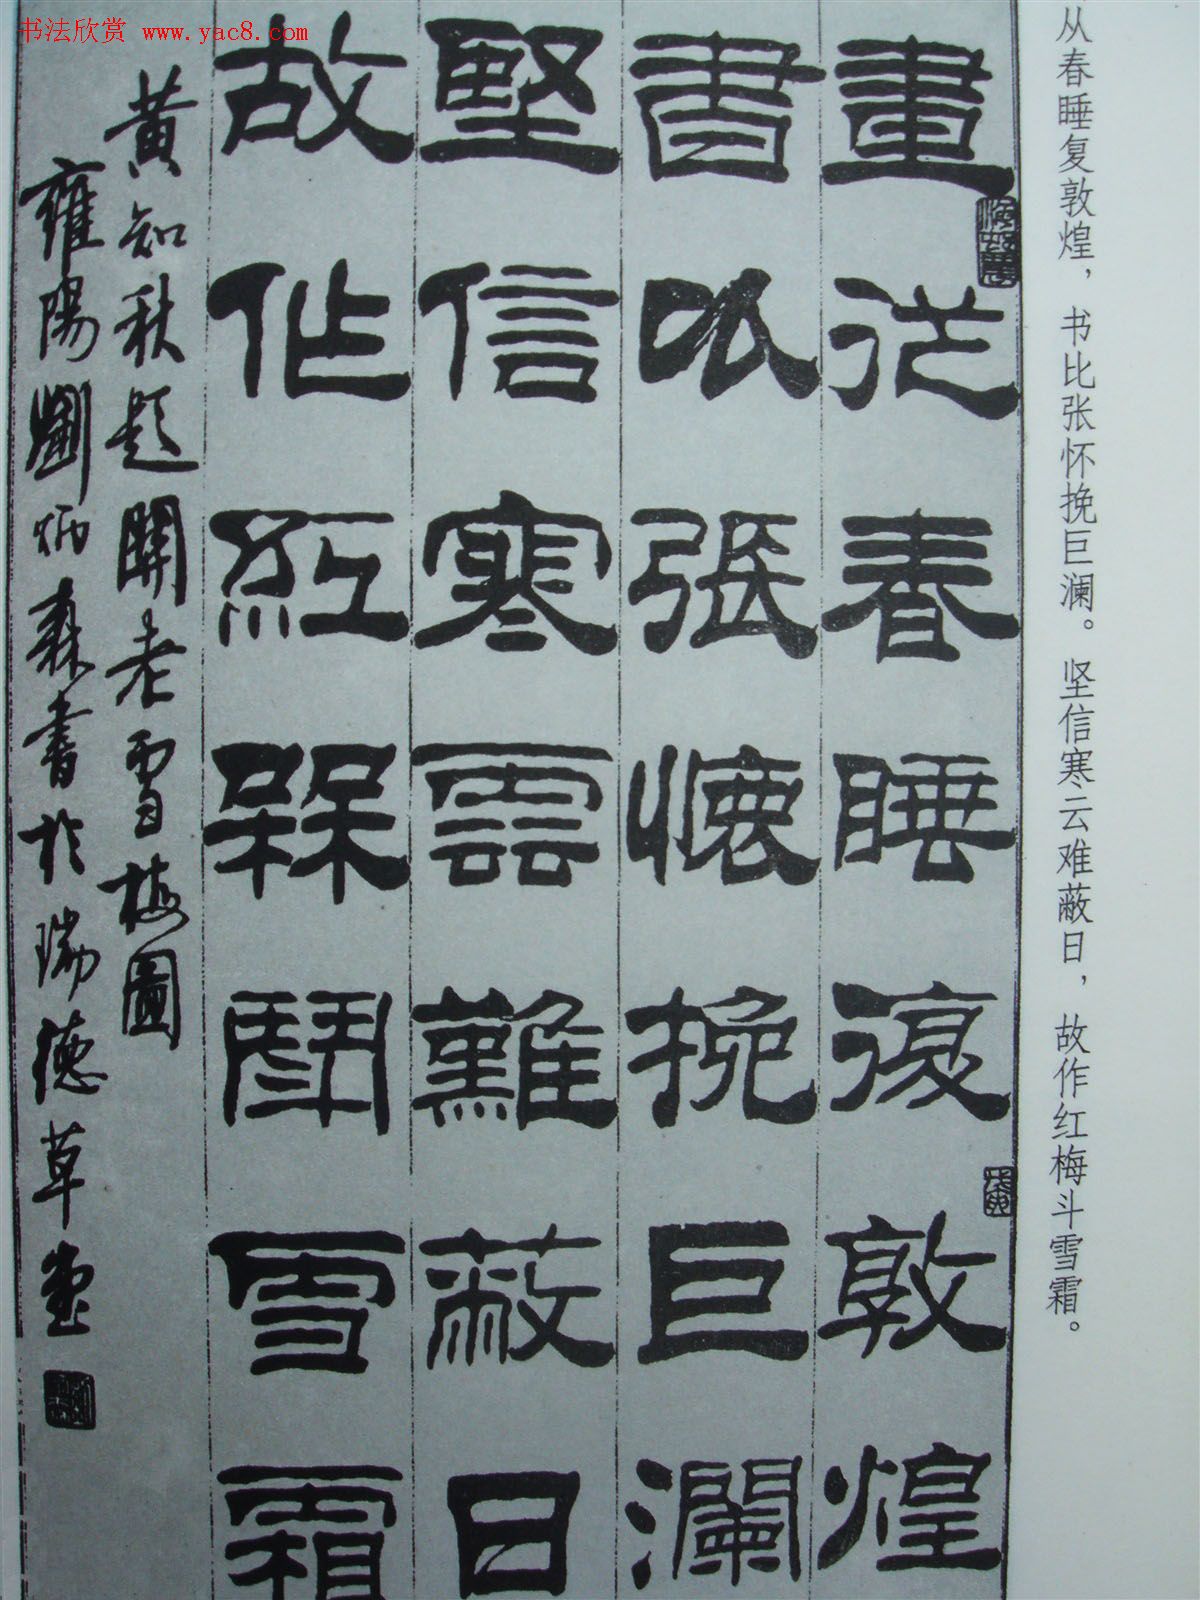 书法欣赏 www.yac8.com
从春睡复敦煌，书比张怀挽巨澜。坚信寒云难蔽日，故作红梅斗雪霜。
畫從春睡復敦煌
書以張懷挽巨瀾
堅信寒雲難蔽日
故作紅槑鬥雪霜
黄知秋題關老雪梅圖
雍陽劉炳森書於瑞德草堂